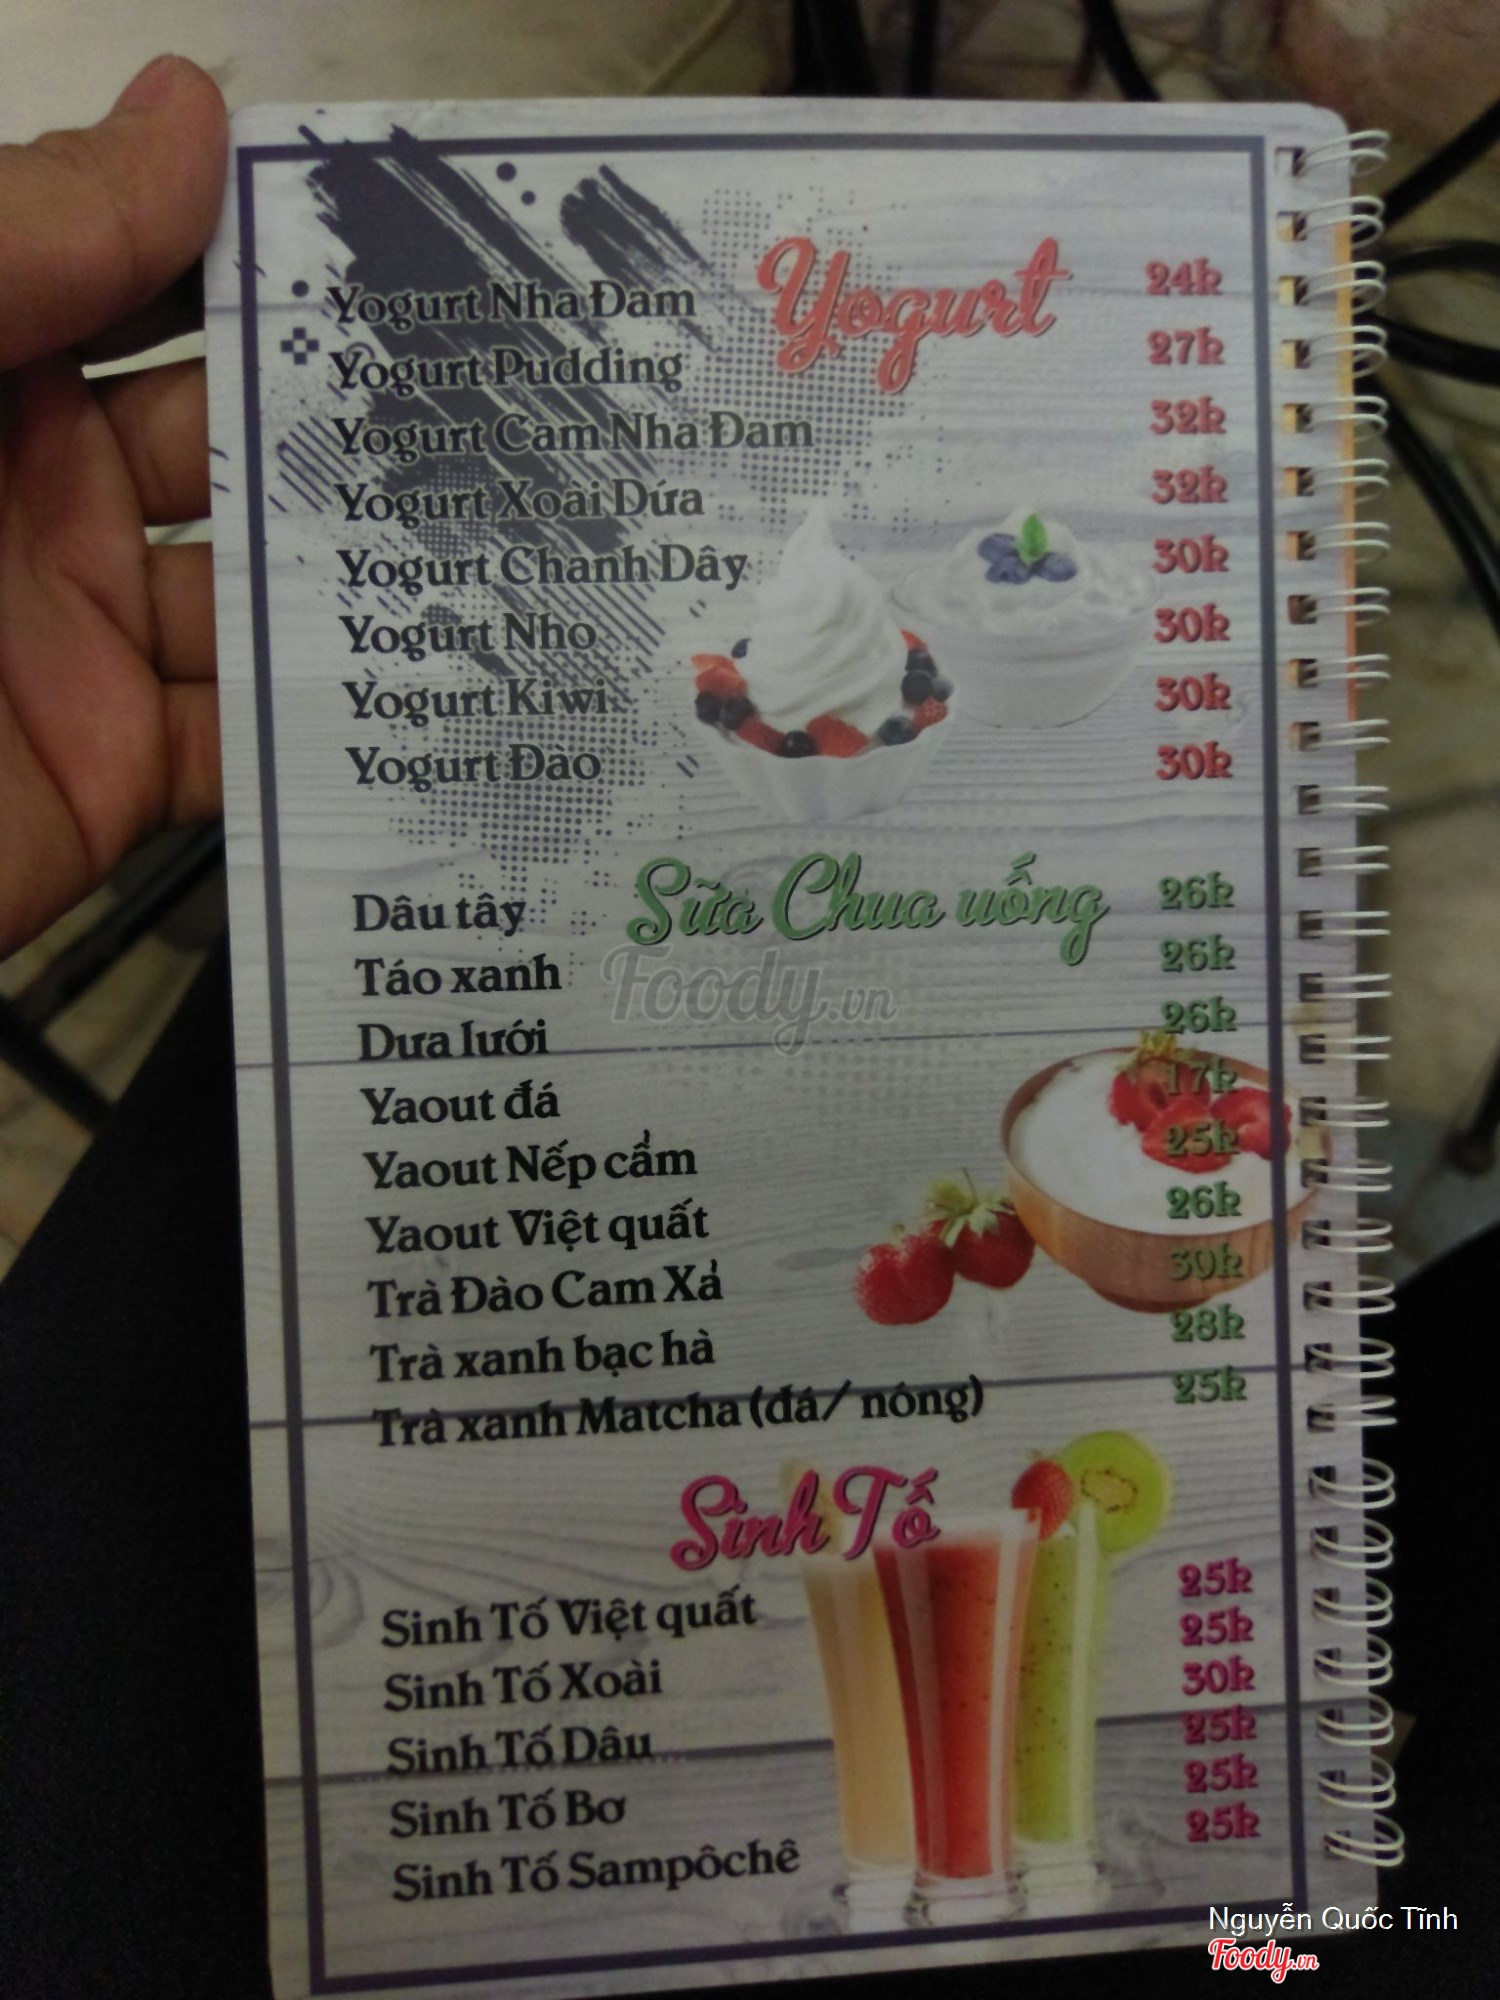 Yogurt
Yogurt Nha Đam 24k
Yogurt Pudding 27k
Yogurt Cam Nha Đam 32k
Yogurt Xoài Dứa 32k
Yogurt Chanh Dây 30k
Yogurt Nho 30k
Yogurt Kiwi 30k
Yogurt Đào 30k
Sữa Chua uống
Dâu tây 26k
Táo xanh 26k
Dưa lưới 26k
Yaout đá 17k
Yaout Nếp cẩm 25k
Yaout Việt quất 26k
Trà Đào Cam Xả 30k
Trà xanh bạc hà 28k
Trà xanh Matcha (đá/ nóng) 25k
Foody.vn
Sinh Tố
Sinh Tố Việt quất 25k
Sinh Tố Xoài 25k
Sinh Tố Dâu 30k
Sinh Tố Bơ 25k
Sinh Tố Sampôchê 25k
25k
Nguyễn Quốc Tĩnh
Foody.vn